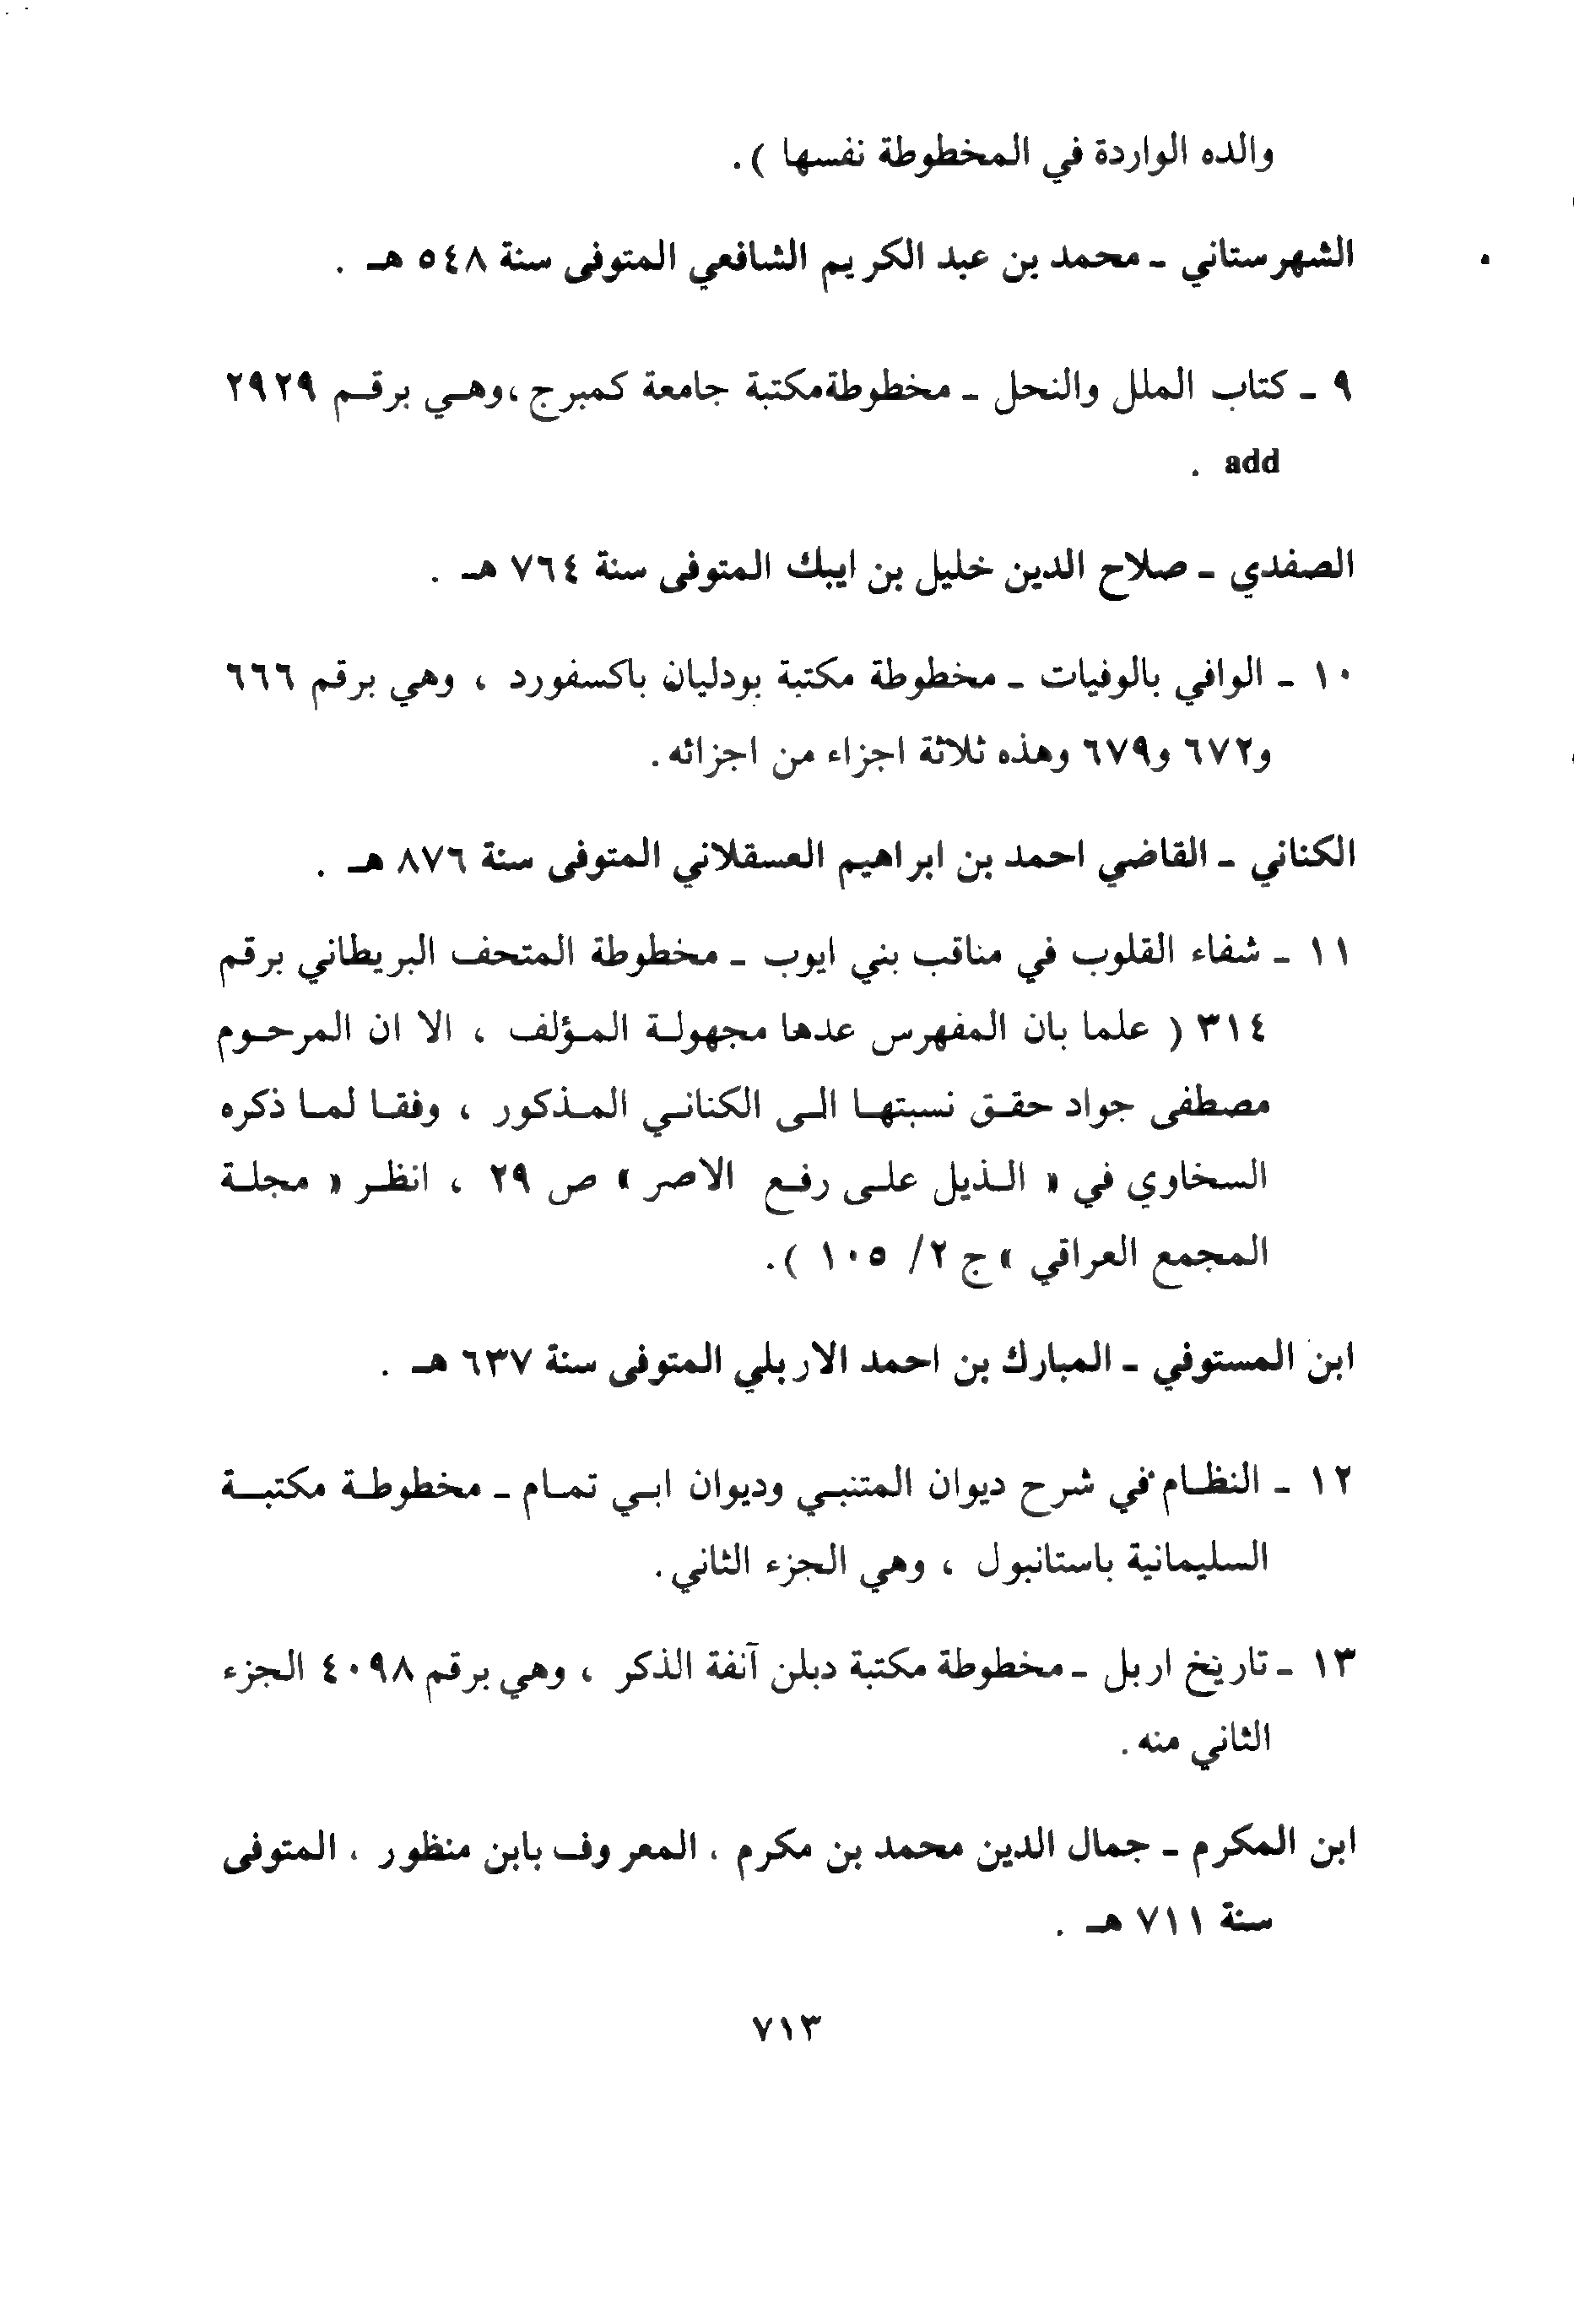 والده الواردة في المخطوطة نفسها ) .
الشهرستاني ـ محمد بن عبد الكريم الشافعي المتوفى سنة ٥٤٨ هـ .
٩ ـ كتاب الملل والنحل ـ مخطوطة مكتبة جامعة كمبرج ، وهي برقم ٢٩٢٩
add .
الصفدي ـ صلاح الدين خليل بن ايبك المتوفى سنة ٧٦٤ هـ .
١٠ ـ الوافي بالوفيات ـ مخطوطة مكتبة بودليان باكسفورد ، وهي برقم ٦٦٦
و٦٧٢ و٦٧٩ وهذه ثلاثة اجزاء من اجزائه .
الكناني ـ القاضي احمد بن ابراهيم العسقلاني المتوفى سنة ٨٧٦ هـ .
١١ ـ شفاء القلوب في مناقب بني ايوب ـ مخطوطة المتحف البريطاني برقم
٣١٤ ( علما بان المفهرس عدها مجهولة المؤلف ، الا ان المرحوم
مصطفى جواد حقق نسبتها الى الكناني المذكور ، وفقا لما ذكره
السخاوي في « الذيل على رفع الاصر » ص ٢٩ ، انظر « مجلة
المجمع العراقي » ج ٢/ ١٠٥ ) .
ابن المستوفي ـ المبارك بن احمد الاربلي المتوفى سنة ٦٣٧ هـ .
١٢ ـ النظام في شرح ديوان المتنبي وديوان ابي تمام ـ مخطوطة مكتبة
السليمانية باستانبول ، وهي الجزء الثاني .
١٣ ـ تاريخ اربل ـ مخطوطة مكتبة دبلن آنفة الذكر ، وهي برقم ٤٠٩٨ الجزء
الثاني منه .
ابن المكرم ـ جمال الدين محمد بن مكرم ، المعروف بابن منظور ، المتوفى
سنة ٧١١ هـ .
٧١٣